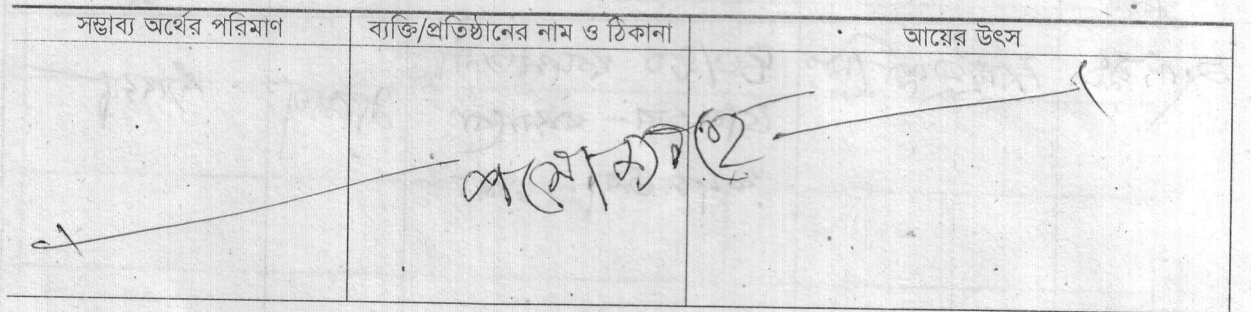 সম্ভাব্য অর্থের পরিমাণ ব্যক্তি/প্রতিষ্ঠানের নাম ও ঠিকানা আয়ের উৎস
প্রযোজ্য নহে